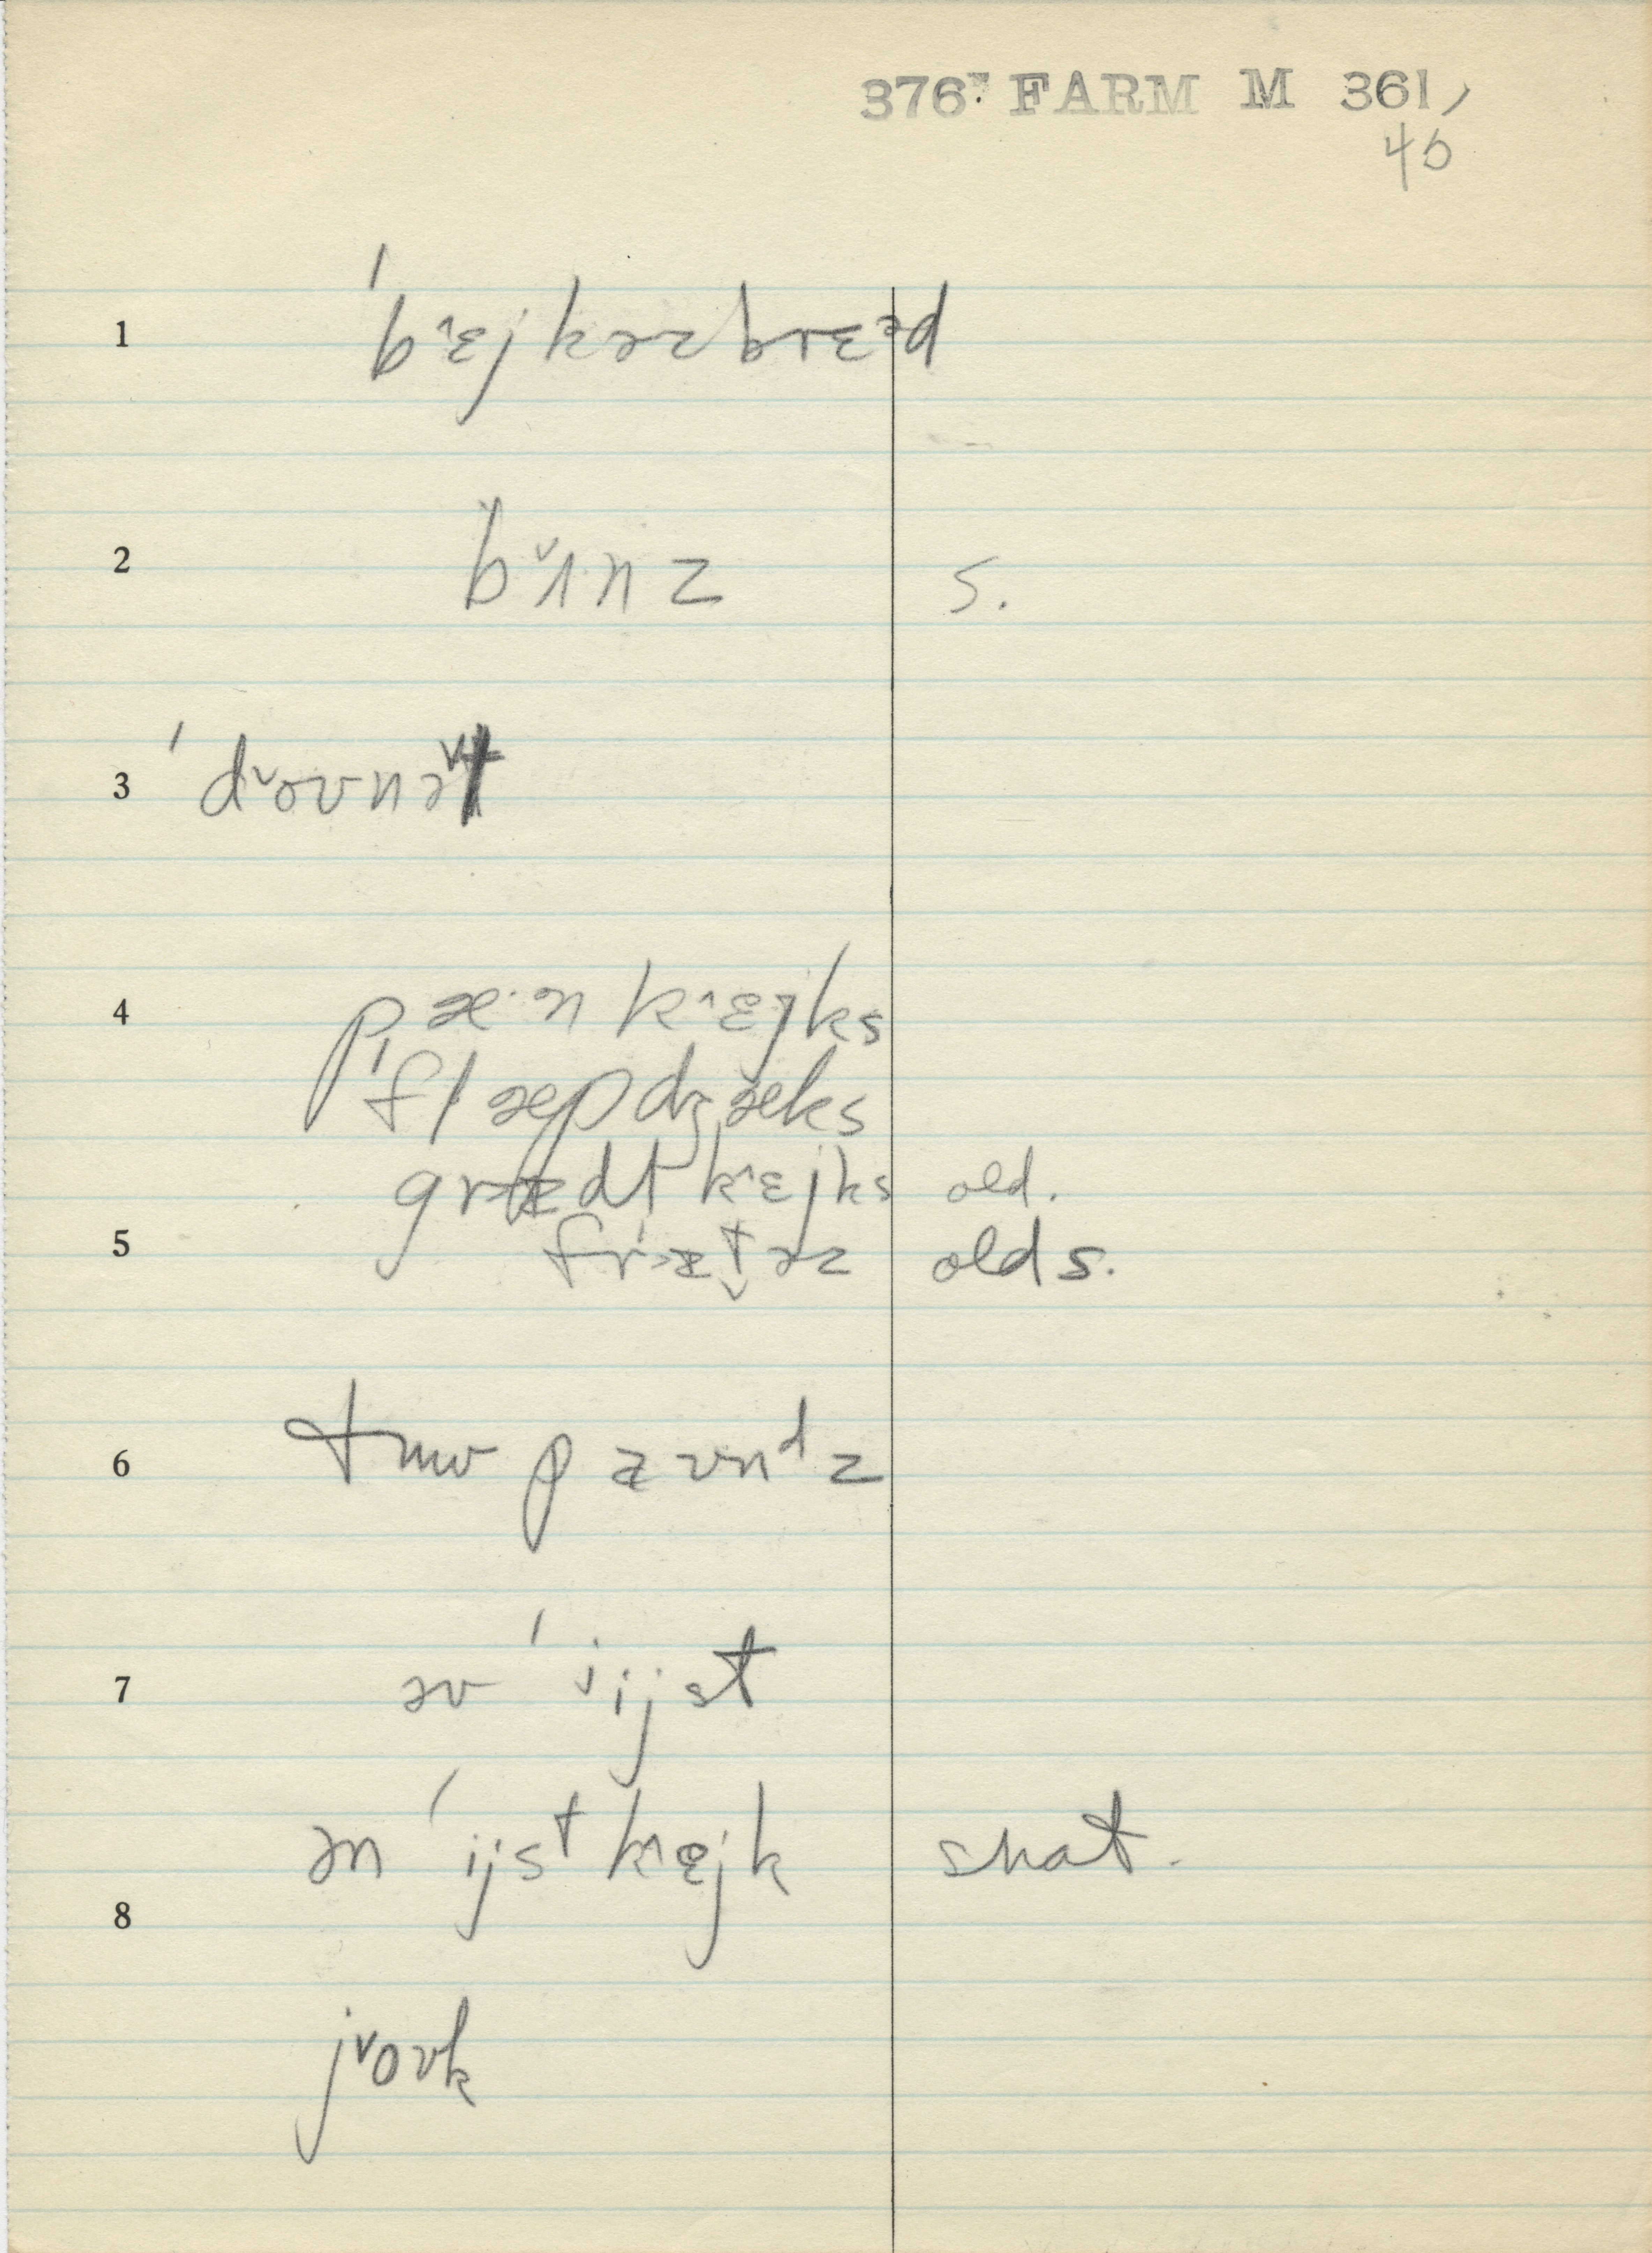 376 FARM M 361,
45
1 ˈb˄ɛjkəzbrɛəd
2 b˅ʌnz s.
3 ˈd˅oʊnət
4 pæ·n k˄ɛjks
ˈflæpdʒæks
grɪdl k˄ɛjks old.
5 ˈfrɪtəz olds.
6 tuw paʊnᵈz
7 əv ˈijst
ən ˈijsᵗ k˄ejk shat.
8
j˅oʊk